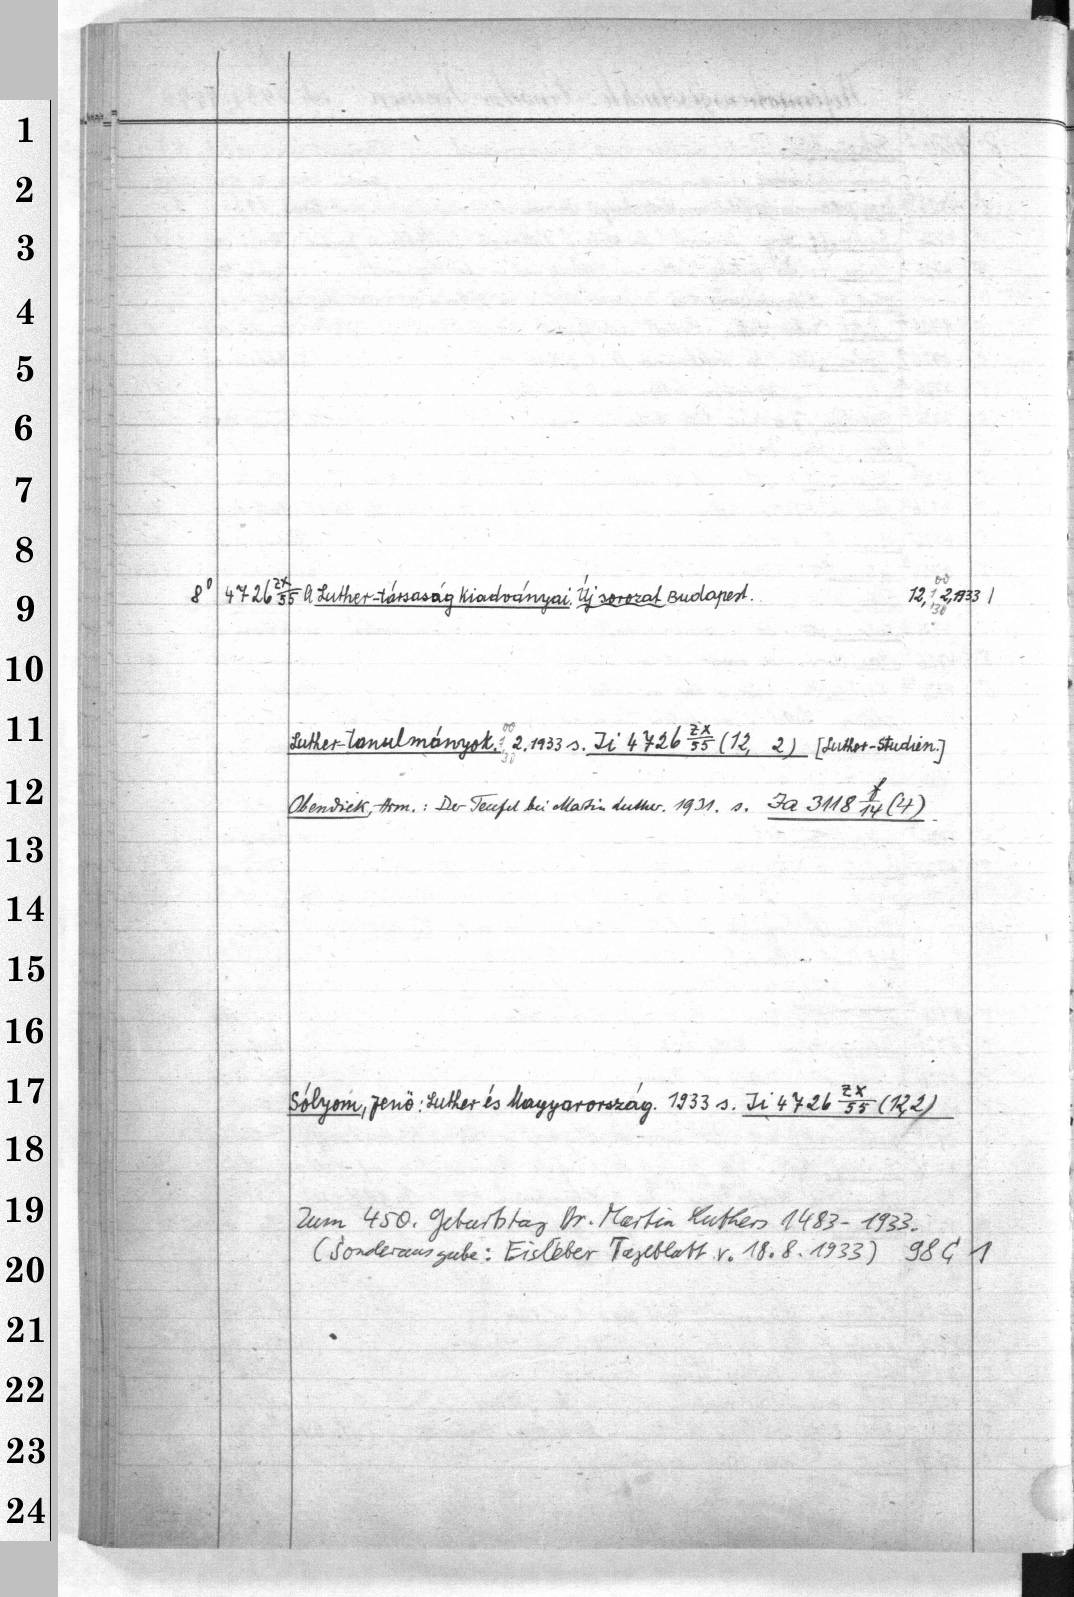 1
2
3
4
5
6
7
8
8° 4726 zx/55 A Luther-társaság kiadványai. Új sorozat Budapest. 12, 2, 1933 |
9
10
11
Luther-tanulmányok. 2. 1933 s. Ii 4726 zx/55 (12, 2) [Luther-Studien.]
12
Obendiek, Hrm.: Der Teufel bei Martin Luther. 1931. s. Ia 3118 f/14 (4)
13
14
15
16
17
Sólyom, Jenö: Luther és Magyarország. 1933 s. Ii 4726 zx/55 (12,2)
18
19
Zum 450. Geburtstag Dr. Martin Luthers 1483-1933.
(Sonderausgabe: Eisleber Tageblatt v. 18.8.1933) 98 G 1
20
21
22
23
24